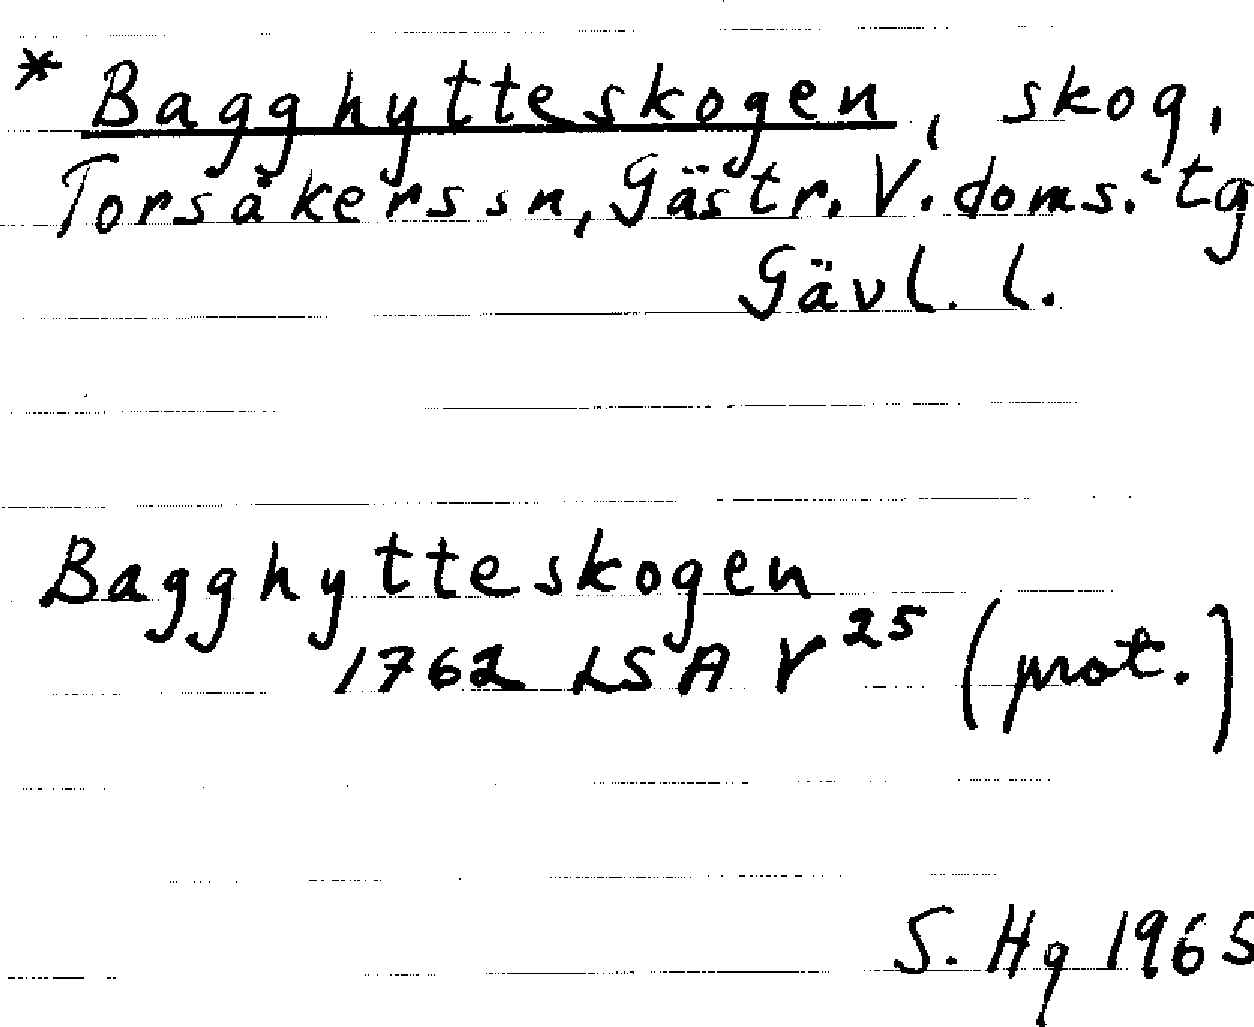 * Bagghytteskogen, skog,
Torsåkers sn, Gästr. V. doms.-tg
Gävl. l.
Bagghytteskogen
1762 LSA V 25 (prot.)
S. Hg 1965